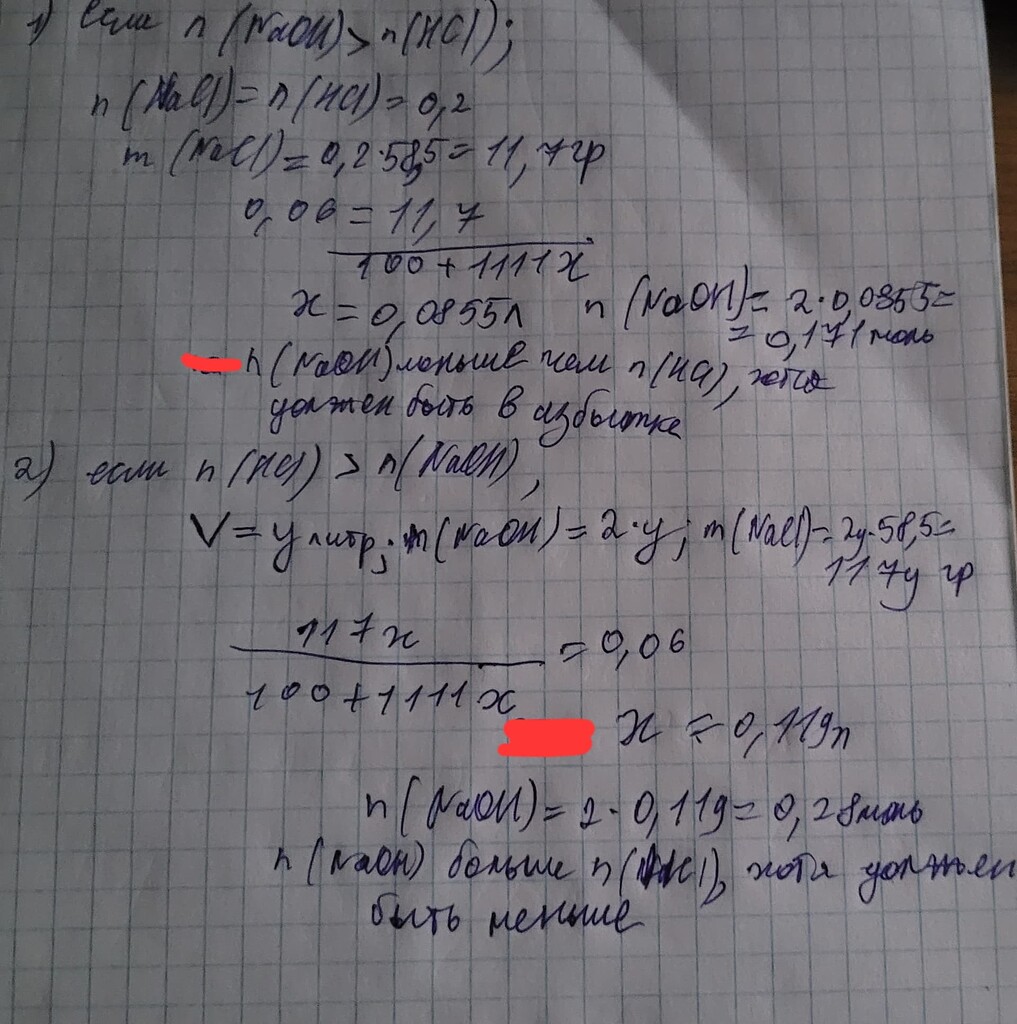 1) если n (NaOH) > n(HCl);
n (NaCl) = n (HCl) = 0,2
m (NaCl) = 0,2·58,5 = 11,7 гр
0,06 = 11,7
100 + 1111x
x = 0,0855л n (NaOH) = 2·0,0855 =
= 0,171 моль
n (NaOH) меньше чем n(HCl), хотя
должен быть в избытке
2) если n (HCl) > n(NaOH),
V = y литр; m(NaOH) = 2·y; m(NaCl) = 2y·58,5 =
117y гр
117x
= 0,06
100 + 1111x
x = 0,119л
n (NaOH) = 2·0,119 = 0,28моль
n (NaOH) больше n(HCl), хотя должен
быть меньше